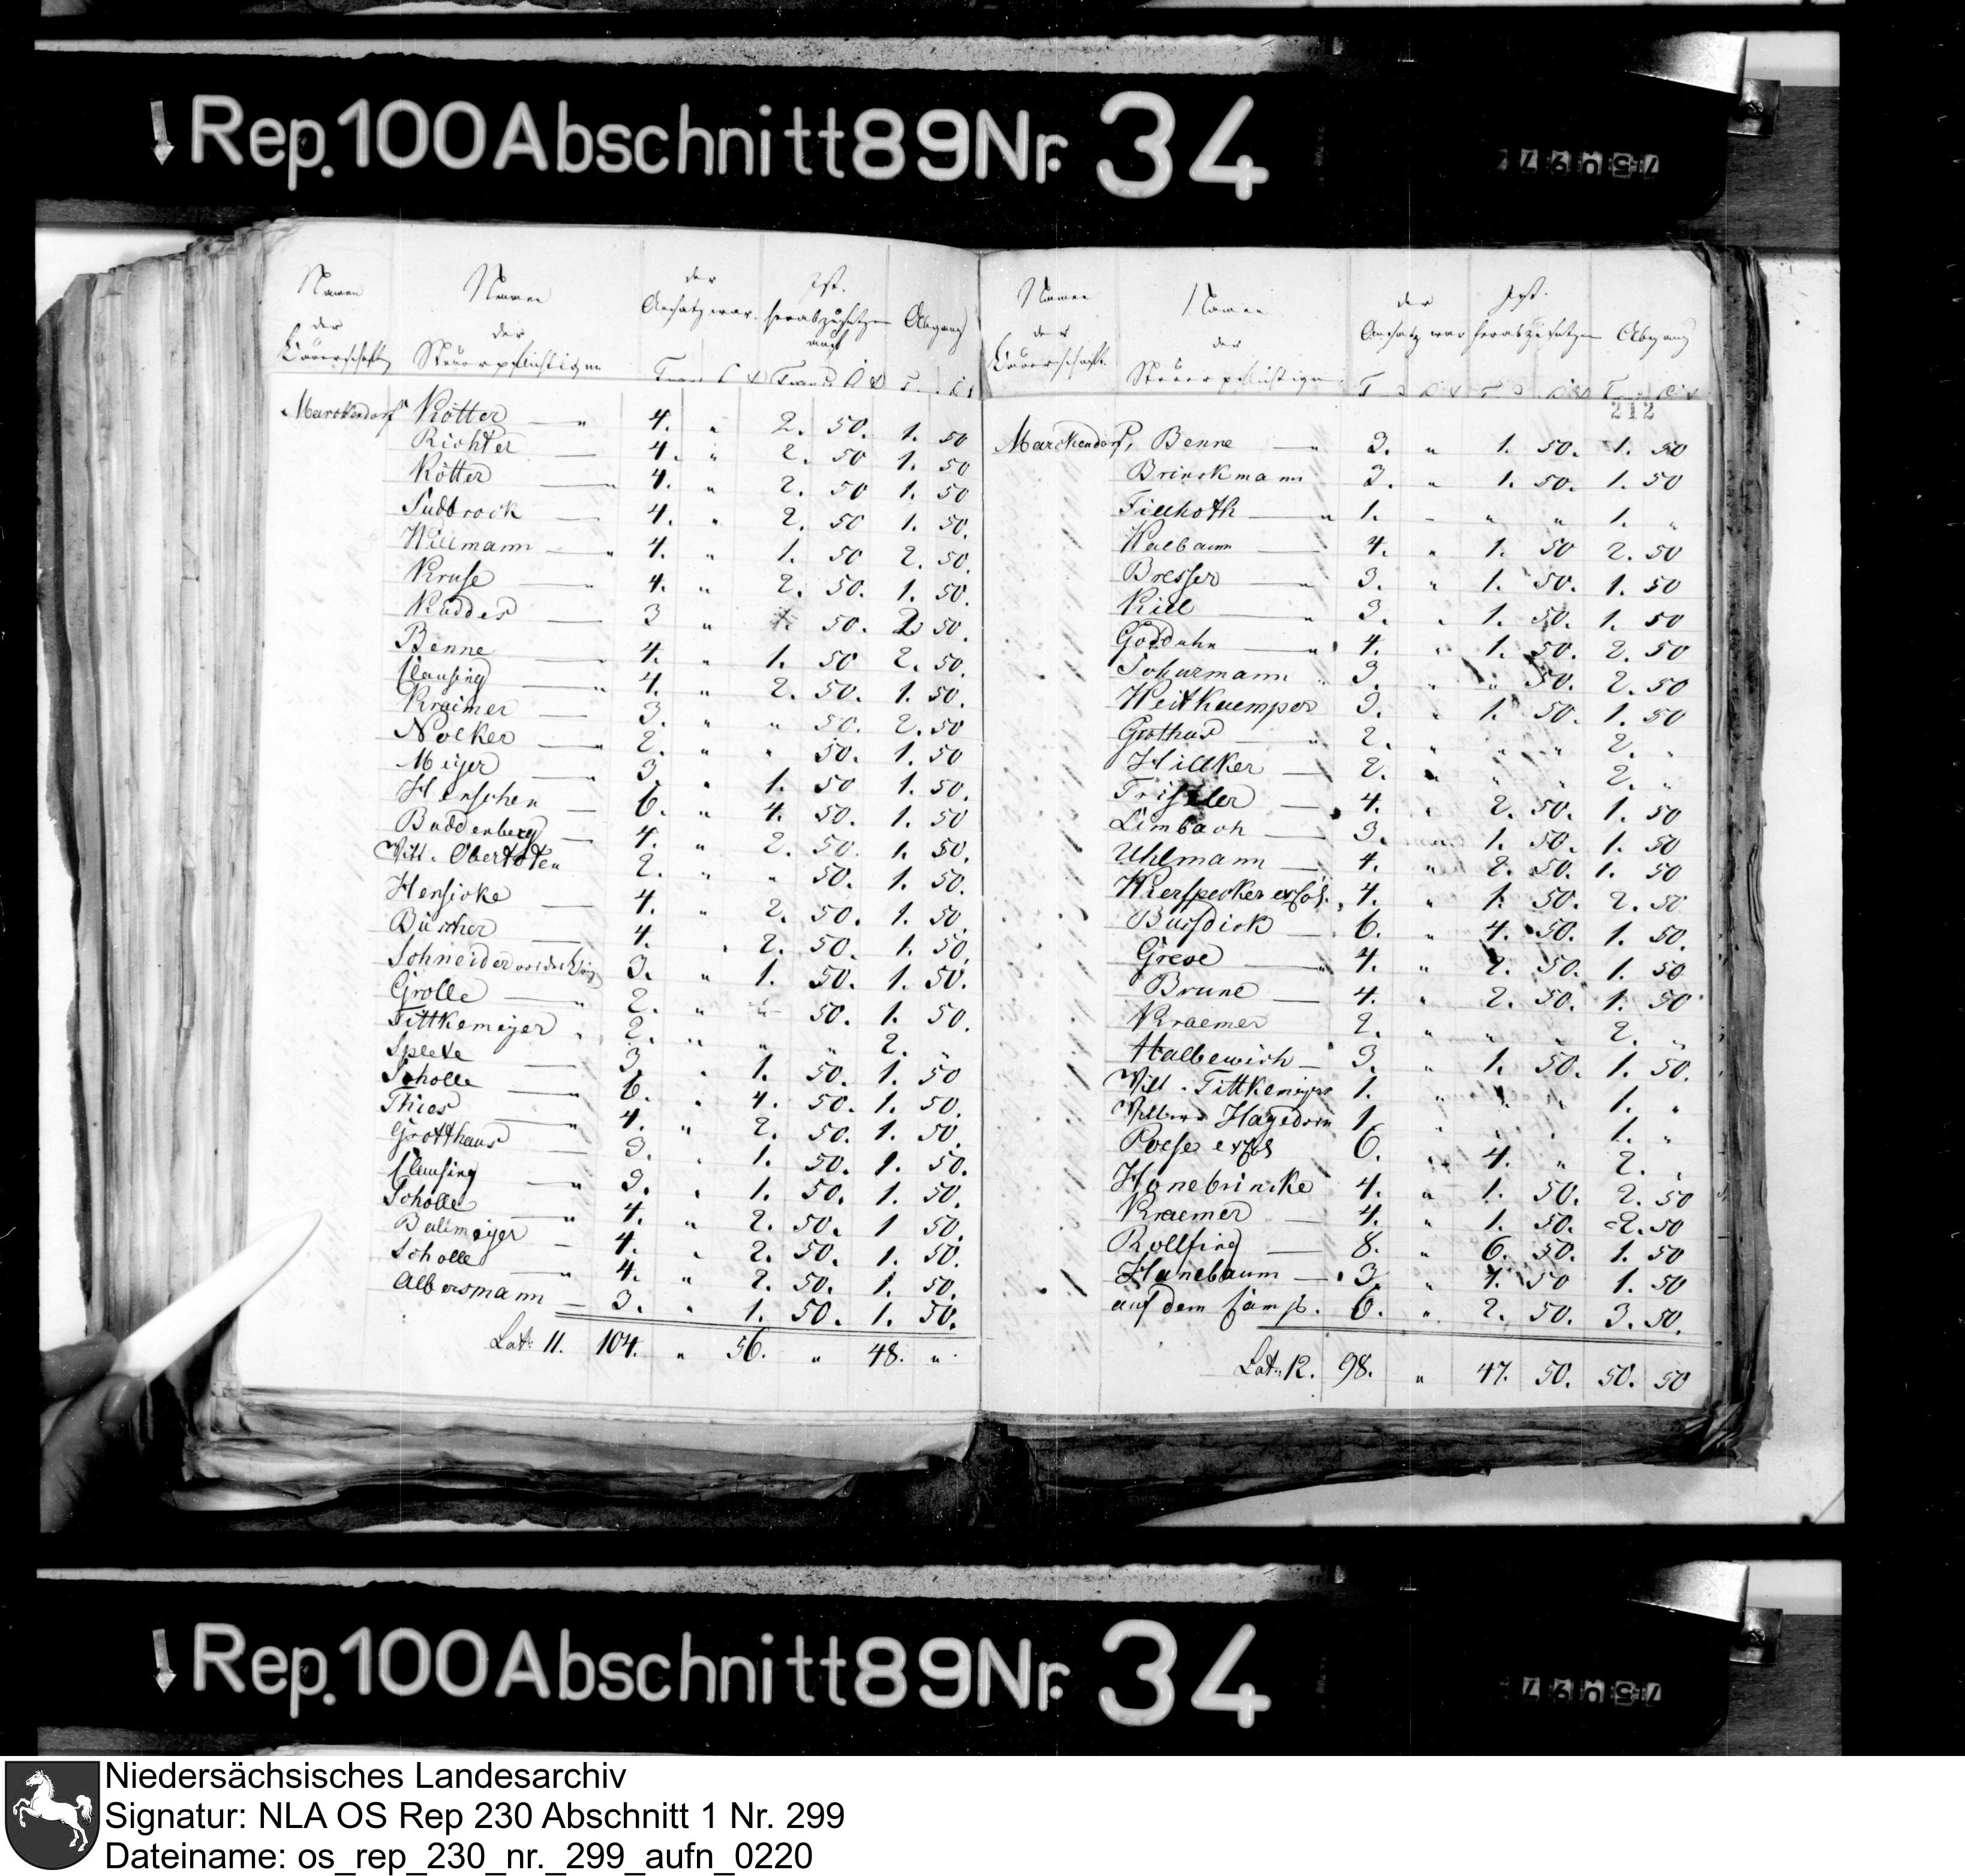 Rep. 100 Abschnitt 89 Nr. 34
Namen Namen der Jst.
der der Ansatz war. herabzusetzen Abgang
Bauerschaft Steuerpflichtigen
Marckendorf Kötter — " 4. " 2. 50. 1. 50
Richter — 4. " 2. 50 1. 50
Kötter — " 4. " 2. 50 1. 50
Sudbrock — 4. " 2. 50 1. 50.
Willmann — " 4. " 1. 50 2. 50.
Kruse — " 4. " 2. 50. 1. 50.
Kuddes — 3 " 1. 50. 2. 50.
Benne — 4. " 1. 50 2. 50.
Clausing — " 4. " 2. 50. 1. 50.
Kraimer — 3. " " 50. 2. 50
Nolker — " 2. " " 50. 1. 50
Meyer — " 3. " 1. 50 1. 50.
Henschen — 6. " 4. 50. 1. 50
Buddenberg — 4. " 2. 50. 1. 50.
Witt. Obertoten 2. " " 50. 1. 50.
Hensicke — 4. " 2. 50. 1. 50
Büscher — 4. " 2. 50. 1. 50.
Schneider 3. " 1. 50. 1. 50.
Grolle — " 2. " " 50. 1. 50.
Tittkemeyer " 2. " " " 2. "
Splete — 3. " 1. 50. 1. 50
Scholle — " 6. " 4. 50. 1. 50.
Thies — " 4. " 2. 50. 1. 50.
Grotthaus — 3. " 1. 50. 1. 50.
Clausing — " 3. " 1. 50. 1. 50.
Scholle — " 4. " 2. 50. 1 50.
Ballmeyer — 4. " 2. 50. 1. 50.
Scholle — " 4. " 2. 50. 1. 50.
Albersmann — 3. " 1. 50. 1. 50.
Lat: 11. 104. " 56. " 48. "
Namen Namen der Jst.
der der Ansatz war herabzusetzen Abgang
Bauerschaft Steuerpflichtigen
212
Marckendorf, Benne — " 3. " 1. 50. 1. 50
Brinckmann 3. " 1. 50. 1. 50
Tiekhoth — " 1. - " " 1. "
Walbaum — 4. " 1. 50 2. 50
Bresser — " 3. " 1. 50. 1. 50
Kiel — " 3. " 1. 50. 1. 50
Godduhn — " 4. " 1. 50. 2. 50
Schurmann " 3. " " 50. 2. 50
Weitkaemper 3. " 1. 50. 1. 50
Grothus — " 2. " " " 2. "
Hillker — 2. " " " 2. "
— 4. " 2. 50. 1. 50
Limbach — 3. 1. 50. 1. 50
Uhlmann — 4. " 2. 50. 1. 50
4. " 1. 50. 2. 50
Bussdick — 6. " 4. 50. 1. 50.
Greve — " 4. " 2. 50. 1. 50
Brune — 4. " 2. 50. 1. 50
Kraemer 2. " " " 2. "
Halbewich — 3. " 1. 50. 1. 50.
Witt. Tittkemeyers 1. " " " 1. "
Hagedorn 1. " " " 1. "
6. " 4. " 2. "
Honebrincke 4. " 1. 50. 2. 50
Kraemer — 4. " 1. 50. 2. 50
Rollfing — 8. " 6. 50. 1. 50
Hanebaum — 3. " 1. 50 1. 50
auf dem Camp. 6. " 2. 50. 3. 50.
Lat: 12. 98. " 47. 50. 50. 50
Rep. 100 Abschnitt 89 Nr. 34
Niedersächsisches Landesarchiv
Signatur: NLA OS Rep 230 Abschnitt 1 Nr. 299
Dateiname: os_rep_230_nr._299_aufn_0220